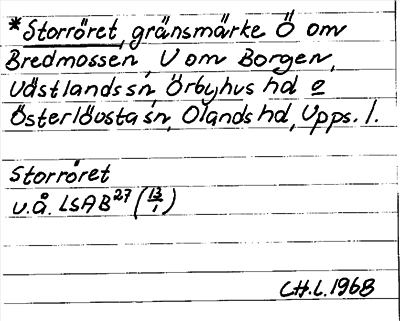 *Storröret, gränsmärke Ö om
Bredmossen, V om Borgen,
Västlands sn, Örbyhus hd o
Österlövsta sn, Olands hd, Upps. l.
Storröret
u.å. LSA B 27 (13/1)
CH.L. 1968